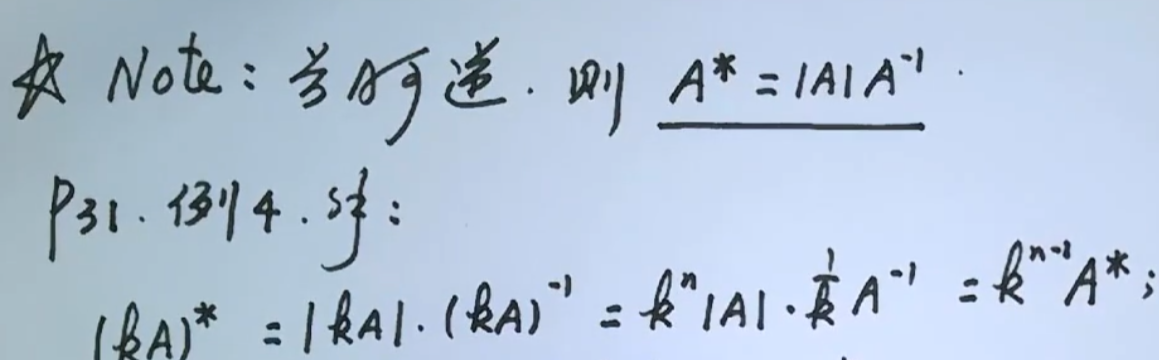 ☆ Note: 当A可逆. 则 A* = |A| A⁻¹.
P31. 例4. 证:
(kA)* = |kA|·(kA)⁻¹ = kⁿ|A|·1/k A⁻¹ = kⁿ⁻¹A*;